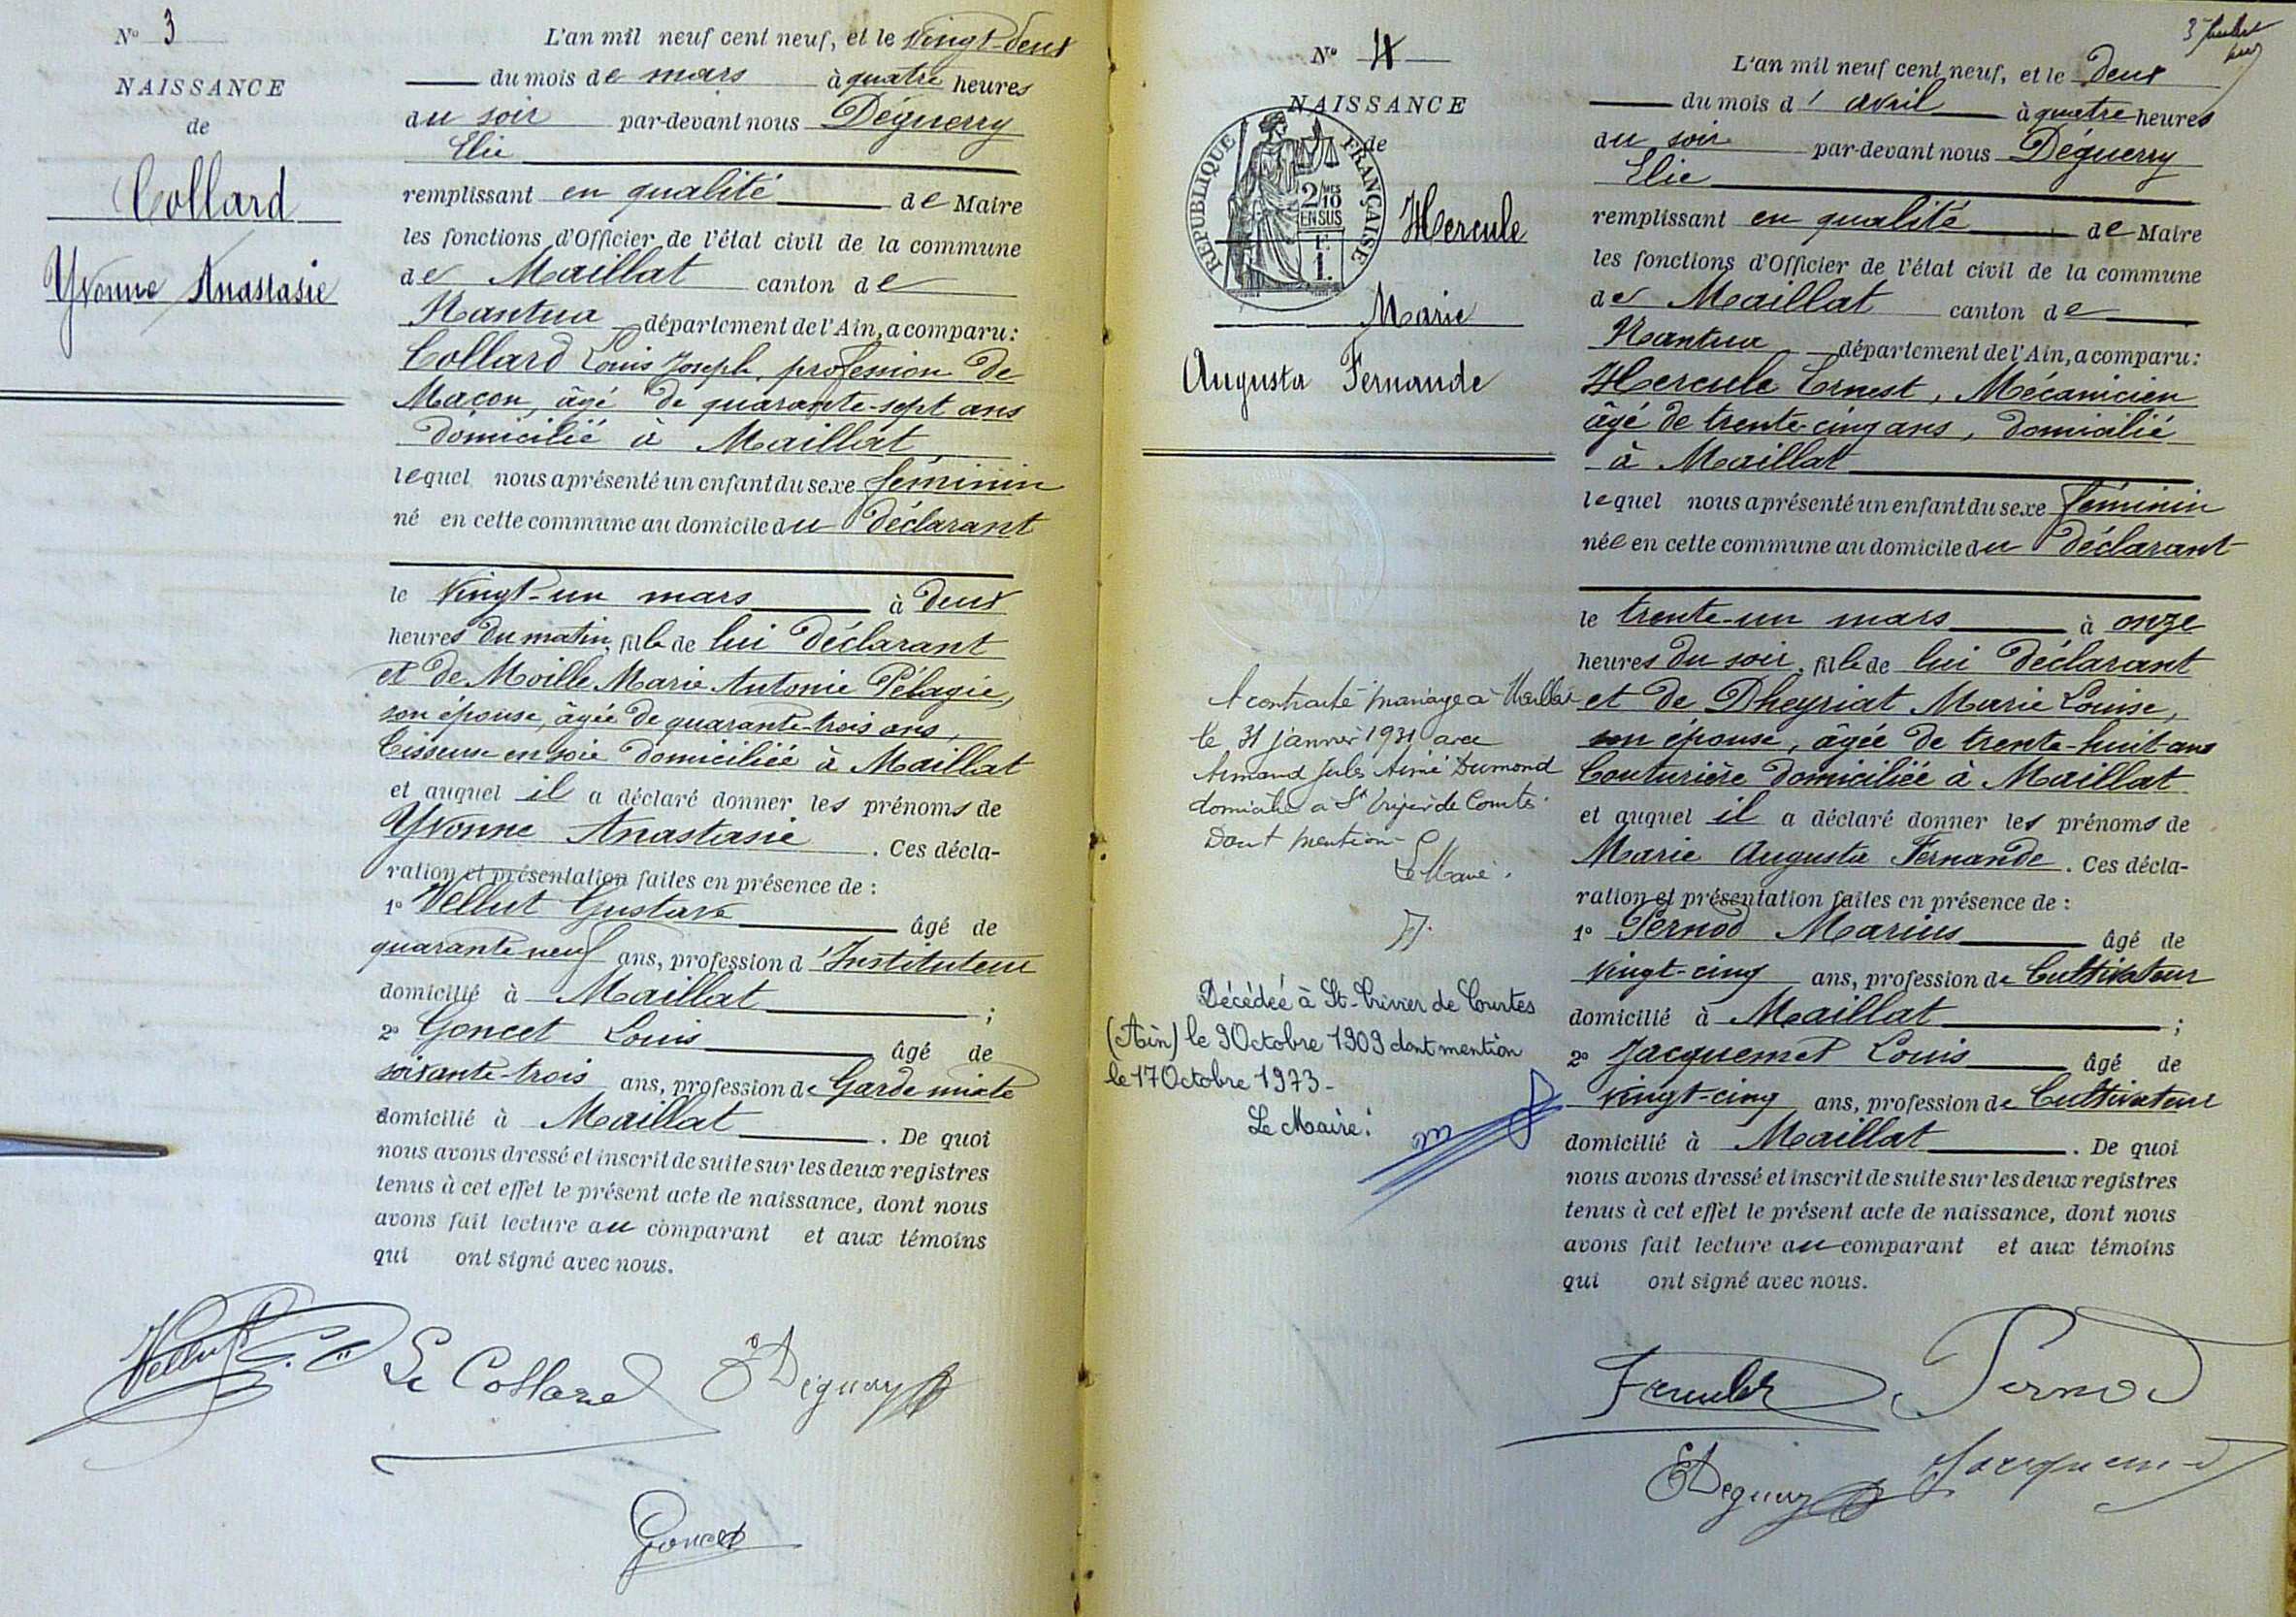 N° 3
NAISSANCE
de
Collard
Yvonne Anastasie
L'an mil neuf cent neuf, et le vingt-deux
du mois de mars à quatre heures
du soir par-devant nous Déguerry
Elie
remplissant en qualité de Maire
les fonctions d'Officier de l'état civil de la commune
de Maillat canton de
Nantua département de l'Ain, a comparu :
Collard Louis Joseph, profession de
Maçon, âgé de quarante-sept ans
domicilié à Maillat,
lequel nous a présenté un enfant du sexe féminin
né en cette commune au domicile du déclarant
le vingt-un mars à deux
heures du matin, fille de lui déclarant
et de Moille Marie Antonie Pélagie,
son épouse, âgée de quarante-trois ans,
Tisseuse en soie domiciliée à Maillat
et auquel il a déclaré donner les prénoms de
Yvonne Anastasie. Ces décla-
ration et présentation faites en présence de :
1° Vellut Gustave âgé de
quarante neuf ans, profession d'Instituteur
domicilié à Maillat ;
2° Goncet Louis âgé de
soixante-trois ans, profession de Garde mixte
domicilié à Maillat. De quoi
nous avons dressé et inscrit de suite sur les deux registres
tenus à cet effet le présent acte de naissance, dont nous
avons fait lecture au comparant et aux témoins
qui ont signé avec nous.
Vellut
Collard
E Déguerry
Goncet
3
N° 4
NAISSANCE
de
REPUBLIQUE FRANÇAISE
2/10 MES
EN SUS
1 F.
Hercule
Marie
Augusta Fernande
L'an mil neuf cent neuf, et le deux
du mois d'avril à quatre heures
du soir par-devant nous Déguerry
Elie
remplissant en qualité de Maire
les fonctions d'Officier de l'état civil de la commune
de Maillat canton de
Nantua département de l'Ain, a comparu :
Hercule Ernest, Mécanicien
âgé de trente-cinq ans, domicilié
à Maillat
lequel nous a présenté un enfant du sexe féminin
née en cette commune au domicile du déclarant
le trente-un mars à onze
heures du soir, fille de lui déclarant
et de Dheyriat Marie Louise,
son épouse, âgée de trente-huit ans
Couturière domiciliée à Maillat
et auquel il a déclaré donner les prénoms de
Marie Augusta Fernande. Ces décla-
ration et présentation faites en présence de :
1° Pernod Marius âgé de
vingt-cinq ans, profession de Cultivateur
domicilié à Maillat ;
2° Jacquemet Louis âgé de
vingt-cinq ans, profession de Cultivateur
domicilié à Maillat. De quoi
nous avons dressé et inscrit de suite sur les deux registres
tenus à cet effet le présent acte de naissance, dont nous
avons fait lecture au comparant et aux témoins
qui ont signé avec nous.
A contracté mariage à Maillat
le 31 janvier 1931 avec
Armand Jules Aimé Dumond
domicilié à St Trivier de Courtes
Dont mention
Le Maire.
Décédée à St-Trivier de Courtes
(Ain) le 9 Octobre 1909 dont mention
le 17 Octobre 1973 -
Le Maire:
Hercule
Pernod
E Déguerry
Jacquemet